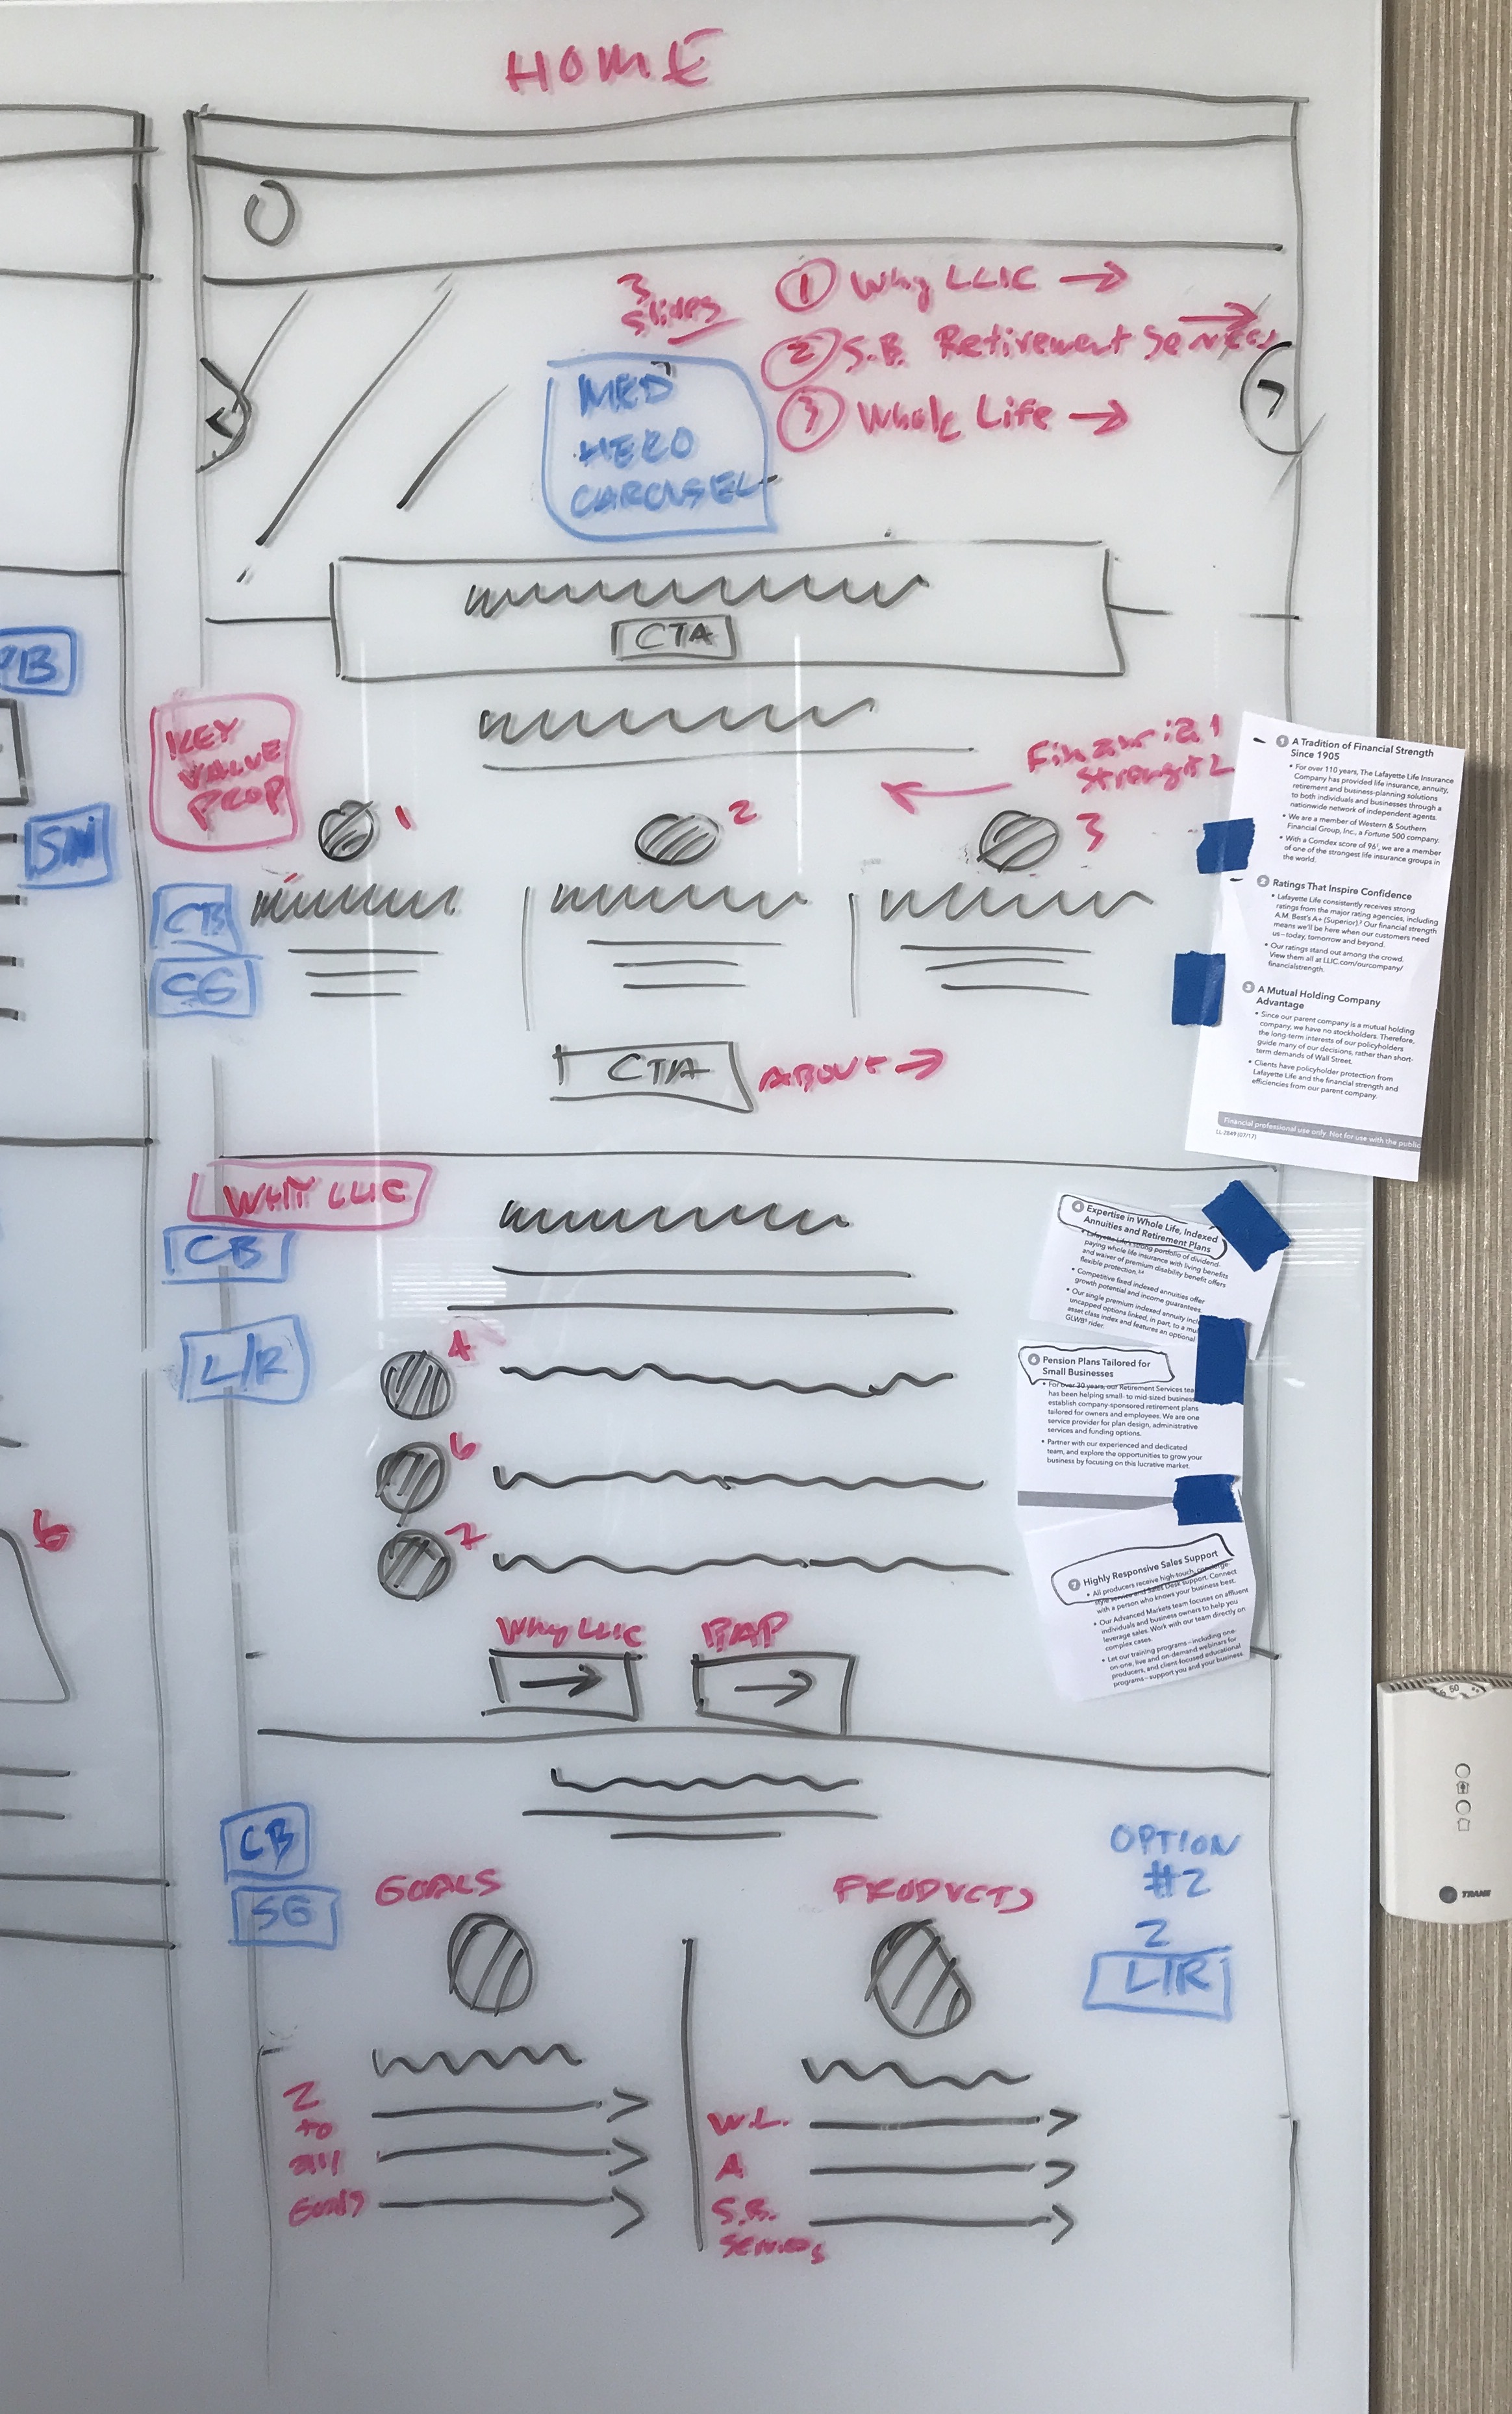 HOME
3
Slides
1 Why LLIC →
2 S.B. Retirement Services →
3 Whole Life →
MED
HERO
CAROUSEL
CTA
PB
SM
KEY
VALUE
PROP
Financial
Strength
1
2
3
CB
CTA
ABOUT →
1 A Tradition of Financial Strength
Since 1905
• For over 110 years, The Lafayette Life Insurance
Company has provided life insurance, annuity,
retirement and business-planning solutions
to both individuals and businesses through a
nationwide network of independent agents.
• We are a member of Western & Southern
Financial Group, Inc., a Fortune 500 company.
• With a Comdex score of 96¹, we are a member
of one of the strongest life insurance groups in
the world.
2 Ratings That Inspire Confidence
• Lafayette Life consistently receives strong
ratings from the major rating agencies, including
A.M. Best's A+ (Superior).² Our financial strength
means we'll be here when our customers need
us—today, tomorrow and beyond.
• Our ratings stand out among the crowd.
View them all at LLIC.com/ourcompany/
financialstrength.
3 A Mutual Holding Company
Advantage
• Since our parent company is a mutual holding
company, we have no stockholders. Therefore,
the long-term interests of our policyholders
guide many of our decisions, rather than short-
term demands of Wall Street.
• Clients have policyholder protection from
Lafayette Life and the financial strength and
efficiencies from our parent company.
Financial professional use only. Not for use with the public
LL-2849 (07/17)
WHY LLIC
CB
L/R
4
6
7
4 Expertise in Whole Life, Indexed
Annuities and Retirement Plans
• Lafayette Life's strong portfolio of dividend-
paying whole life insurance with living benefits
and waiver of premium disability benefit offers
flexible protection.
• Competitive fixed indexed annuities offer
growth potential and income guarantees.
• Our single premium indexed annuity
uncapped options linked, in part, to a
asset class index and features an optional
GLWB rider.
6 Pension Plans Tailored for
Small Businesses
• For over 30 years, our Retirement Services
has been helping small- to mid-sized
establish company-sponsored retirement plans
tailored for owners and employees. We are one
service provider for plan design, administrative
services and funding options.
• Partner with our experienced and dedicated
team, and explore the opportunities to grow your
business by focusing on this lucrative market.
7 Highly Responsive Sales Support
• All producers receive high-touch, concierge-
style service and Sales Desk support. Connect
with a person who knows your business best.
• Our Advanced Markets team focuses on affluent
individuals and business owners to help you
leverage sales. Work with our team directly on
complex cases.
• Let our training programs—including one-
on-one, live and on-demand webinars for
producers, and client-focused educational
programs—support you and your business
6
Why LLIC
→
→
CB
SG
GOALS
PRODUCTS
OPTION
#2
2
L/R
2
to
all
Goals
W.L.
A
S.B.
Services
60
TRANE